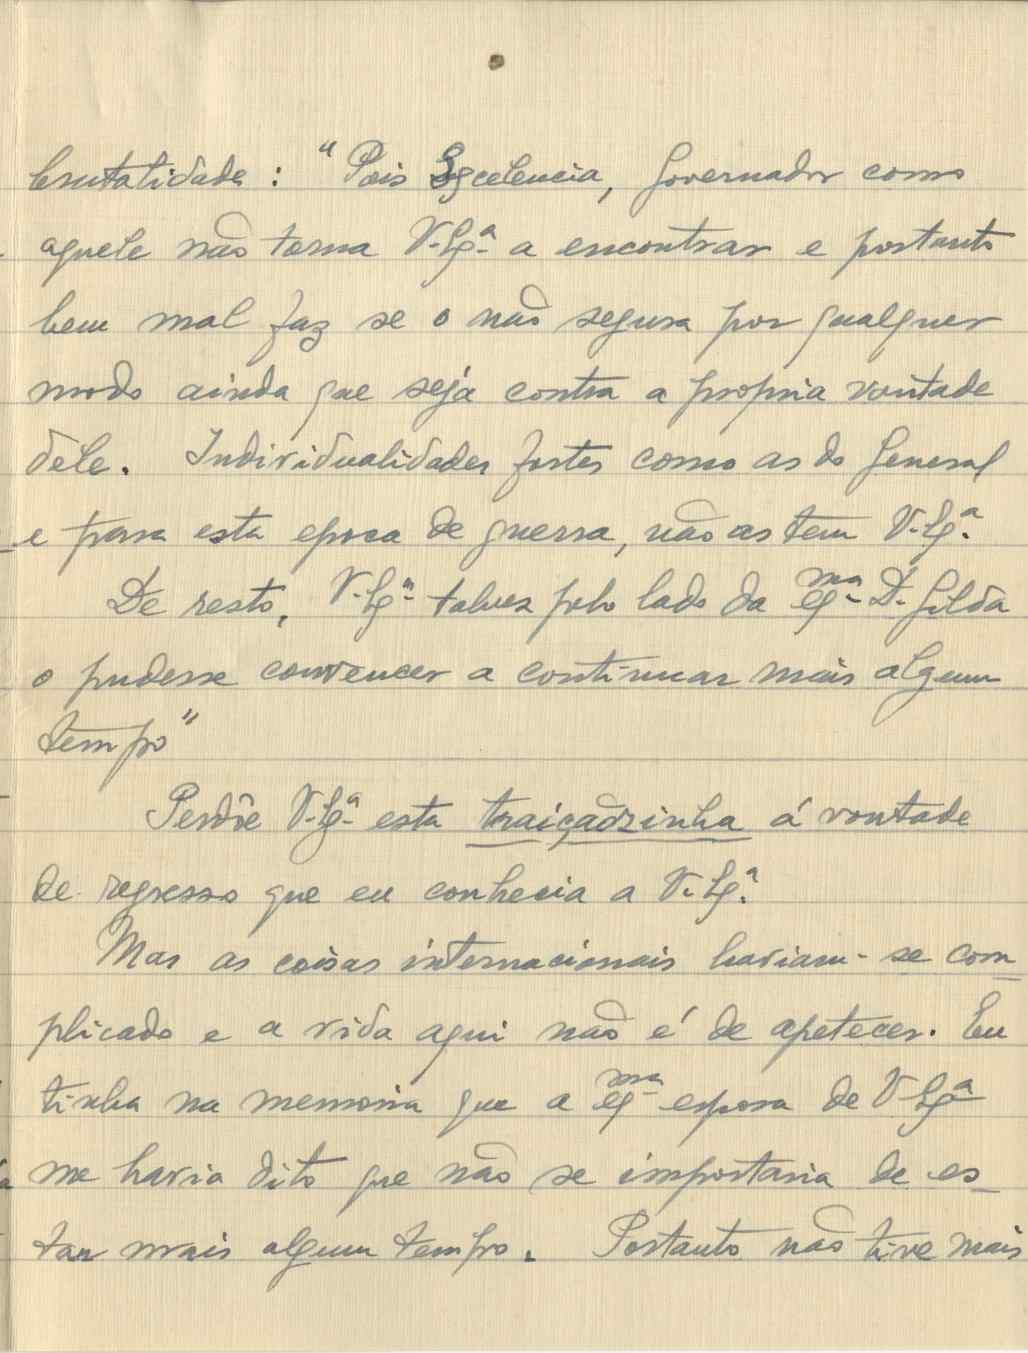 brutalidade: "Pois Excelencia, Governador como
aquele não torna V. Exª a encontrar e portanto
bem mal faz se o não segura por qualquer
modo ainda que seja contra a propria vontade
dele. Individualidades fortes como as do General
e para esta epoca de guerra, não as tem V. Exª.
De resto, V. Exª talvez pelo lado da Exma D. Gilda
o pudesse convencer a continuar mais algum
tempo"
Perdôe V. Exª esta traiçãozinha á vontade
de regresso que eu conhecia a V. Exª.
Mas as coisas internacionais haviam-se com-
plicado e a vida aqui não é de apetecer. Eu
tinha na memoria que a Exma esposa de V Exª
me havia dito que não se importaria de es-
tar mais algum tempo. Portanto não tive mais